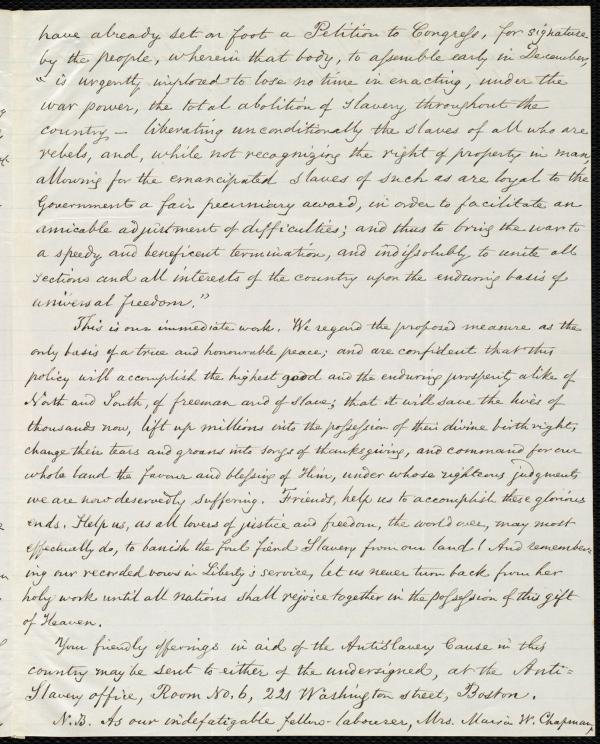 have already set on foot a Petition to Congress, for signature
by the people, wherein that body, to assemble early in December,
"is urgently implored to lose no time in enacting, under the
war power, the total abolition of slavery throughout the
country — liberating unconditionally the slaves of all who are
rebels, and, while not recognizing the right of property in man,
allowing for the emancipated slaves of such as are loyal to the
Government a fair pecuniary award, in order to facilitate an
amicable adjustment of difficulties; and thus to bring the war to
a speedy and beneficent termination, and indissolubly to unite all
sections and all interests of the country upon the enduring basis of
universal freedom."
This is our immediate work. We regard the proposed measure as the
only basis of a true and honourable peace; and are confident that this
policy will accomplish the highest good and the enduring prosperity alike of
North and South, of freeman and of slave; that it will save the lives of
thousands now, lift up millions into the possession of their divine birthright,
change their tears and groans into songs of thanksgiving, and command for our
whole land the favour and blessing of Him, under whose righteous judgments
we are now deservedly suffering. Friends, help us to accomplish these glorious
ends. Help us, as all lovers of justice and freedom, the world over, may most
effectually do, to banish the foul fiend Slavery from our land! And remember-
ing our recorded vows in Liberty's service, let us never turn back from her
holy work until all nations shall rejoice together in the possession of this gift
of Heaven.
Your friendly offerings in aid of the AntiSlavery Cause in this
country may be sent to either of the undersigned, at the Anti-
Slavery office, Room No. 6, 221 Washington street, Boston.
N.B. As our indefatigable fellow-labourer, Mrs. Maria W. Chapman,